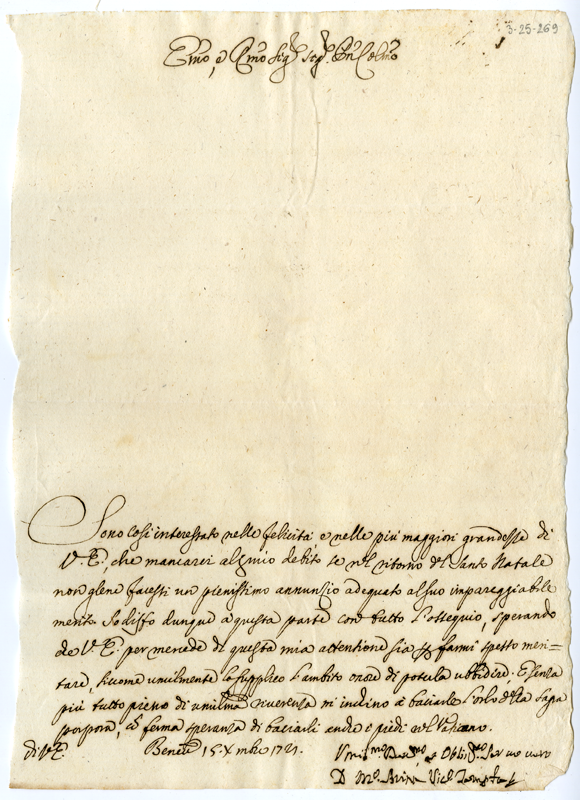 3-25-269
Emo, e Rmo Sigr Sigr Pne Colmo
Sono così interessato nelle felicità e nelle più maggiori grandezze di
V. E., che mancarei al mio debito se nel ritorno del Santo Natale
non glene facesti un pienissimo annunzio adequato al suo impareggiabile
merito. Sodisfo dunque a questa parte con tutto l'ossequio, sperando
da V. E. per mercede di questa mia attentione sia farmi spesso meri=
tare, sicome umilmente la supplico l'ambito onore di poterla ubbidire. E senza
più tutto pieno di umilma riverenza m'inclino a baciarle l'orlo della Sagra
porpora, cō ferma speranza di baciarli anche i piedi nel Vaticano.
di V. E. Beneto 15. Xmbre 1721.
Umilmo Devmo, et Obligmo Servo vero
D. Mco